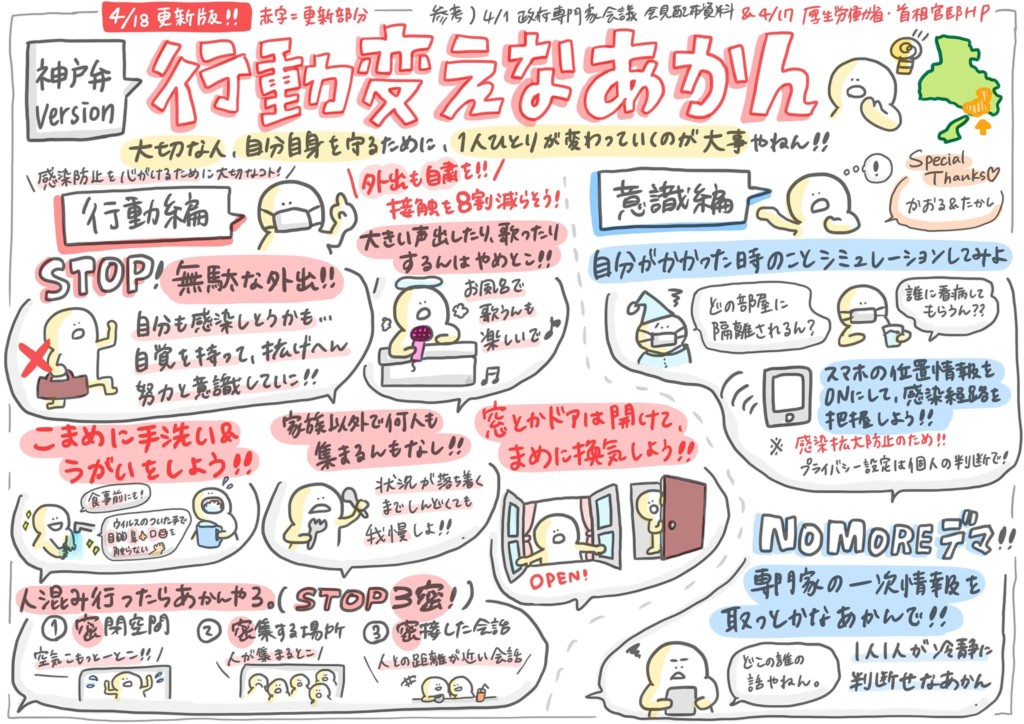 4/18 更新版!! 赤字=更新部分
参考) 4/1 政府専門家会議 会見配布資料 & 4/17 厚生労働省・首相官邸HP
神戸弁
version
行動変えなあかん
大切な人、自分自身を守るために、1人ひとりが変わっていくのが大事やねん!!
Special
Thanks♡
かおる&たかし
感染防止を心がけるために大切なコト!
行動編
外出も自粛を!!
接触を8割減らそう!
STOP! 無駄な外出!!
自分も感染しとうかも…
自覚を持って、拡げへん
努力と意識していこ!!
大きい声出したり、歌ったり
するんはやめとこ!!
お風呂で
歌うんも
楽しいで♪
こまめに手洗い&
うがいをしよう!!
食事前にも!
ウイルスのついた手で
目鼻口を
触らない
家族以外で何人も
集まるんもなし!!
状況が落ち着く
までしんどくても
我慢しよ!!
窓とかドアは開けて、
まめに換気しよう!!
OPEN!
人混み行ったらあかんやろ。(STOP3密!)
① 密閉空間
空気こもっとーとこ!!
② 密集する場所
人が集まるとこ
③ 密接した会話
人との距離が近い会話
意識編
!
自分がかかった時のことシミュレーションしてみよ
どの部屋に
隔離されるん?
誰に看病して
もらうん??
スマホの位置情報を
ONにして、感染経路を
把握しよう!!
※ 感染拡大防止のため!!
プライバシー設定は個人の判断で!
NO MORE デマ!!
専門家の一次情報を
取っとかなあかんで!!
どこの誰の
話やねん。
1人1人が冷静に
判断せなあかん